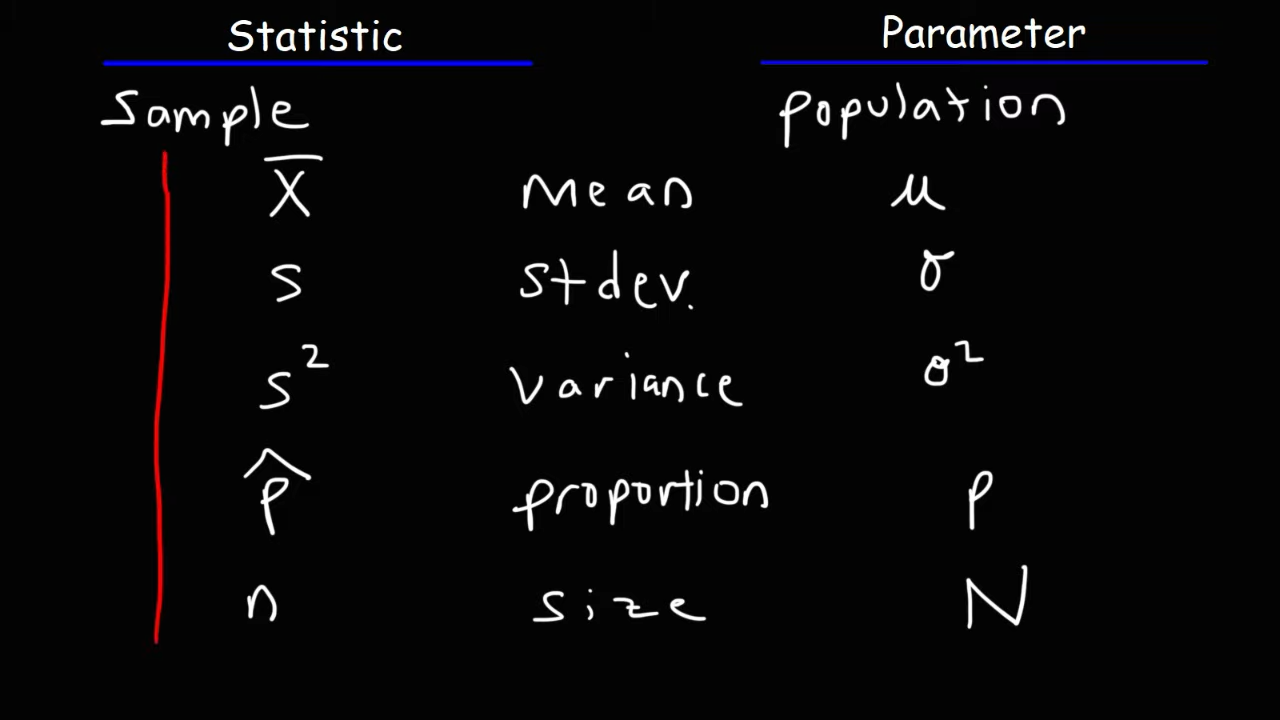 Statistic Parameter
Sample population
X̄ Mean μ
s stdev. σ
s² variance σ²
p̂ proportion p
n size N